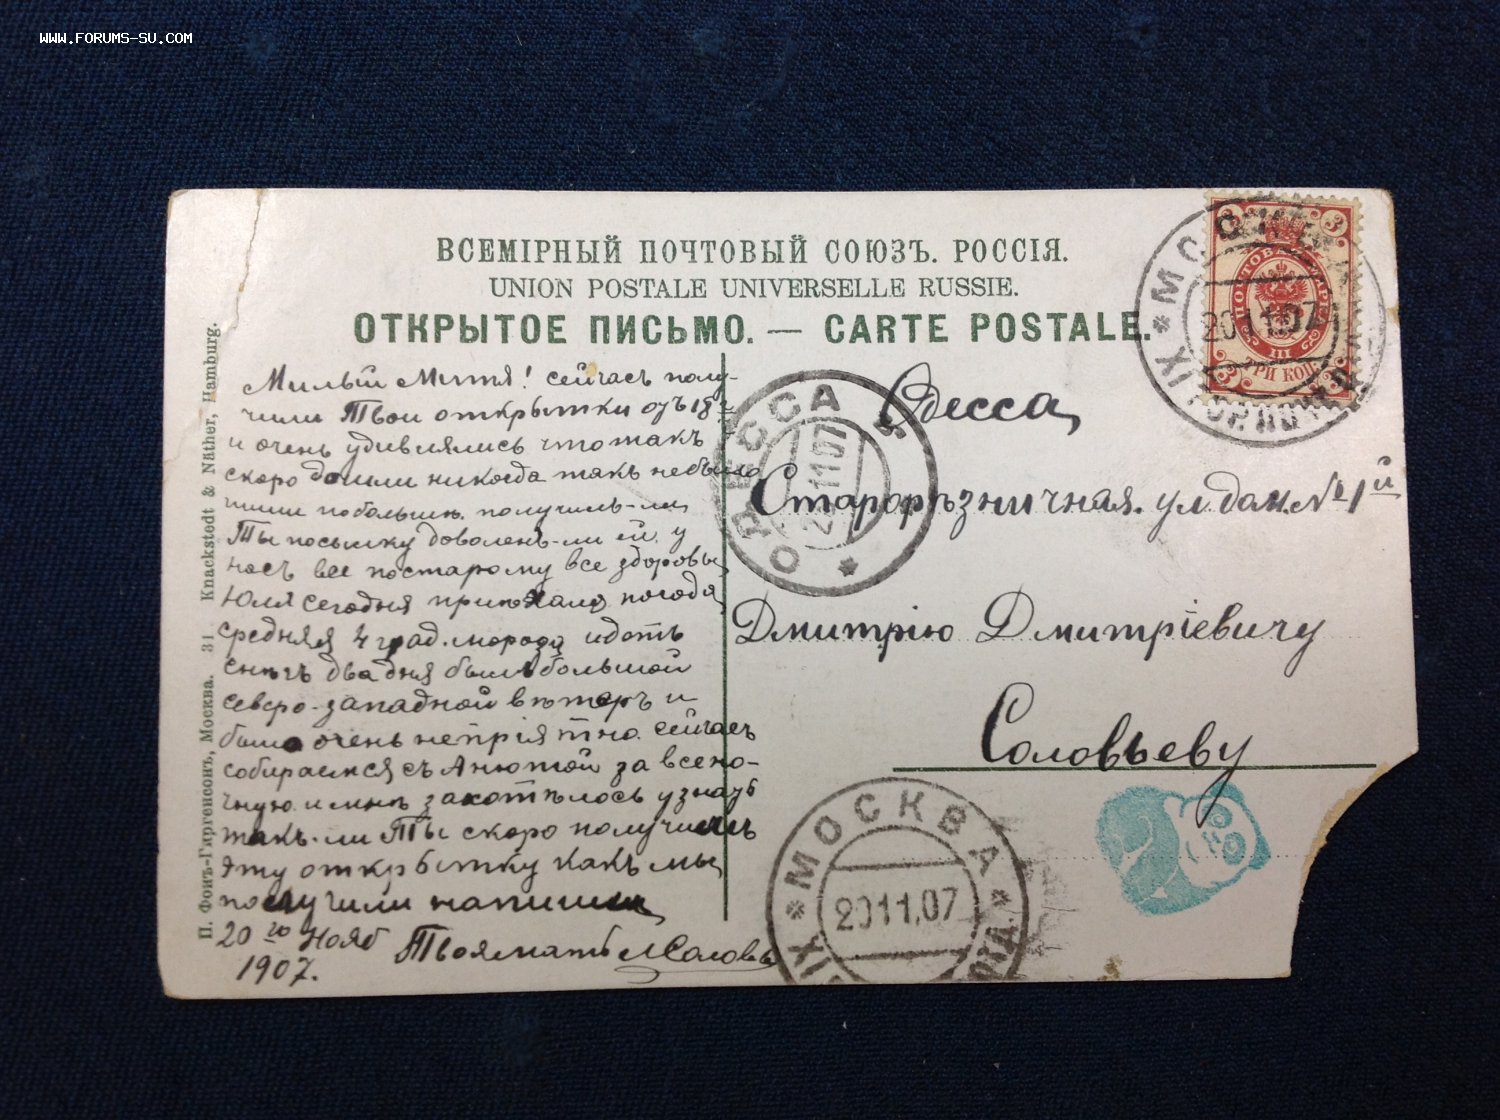 WWW.FORUMS-SU.COM
ВСЕМІРНЫЙ ПОЧТОВЫЙ СОЮЗЪ. РОССІЯ.
UNION POSTALE UNIVERSELLE RUSSIE.
ОТКРЫТОЕ ПИСЬМО. — CARTE POSTALE.
П. Фонъ-Гиргенсонъ, Москва. 31. Knackstedt & Näther, Hamburg.
Милый Митя! сейчасъ полу-
чили Твои открытки отъ 18
и очень удивлялись что такъ
скоро дошли никогда такъ небыло
пиши побольше получилъ-ли
Ты посылку доволенъ-ли ей. у
насъ все постарому все здоровы,
Юля сегодня приѣхала погода
средняя 4 град. мороза идетъ
снѣгъ два дня былъ большой
северо-западной вѣтеръ и
было очень непріятно. сейчасъ
собираемся съ Анютой за всено-
чную и мнѣ захотѣлось узнать
такъ-ли Ты скоро получишь
эту открытку какъ мы
получили напиши
20го Нояб
1907.
Твоя мать М Соловь
Одесса,
Старорѣзничная. ул. дом. № 1й
Дмитрію Дмитріевичу
Соловьеву
3 3
ПОЧТОВАЯ МАРКА
III
ТРИ КОП.
МОСКВА
20.11.07
XI ГОР. ПОЧТ.
ОДЕССА
11.07
МОСКВА
20.11.07
XI